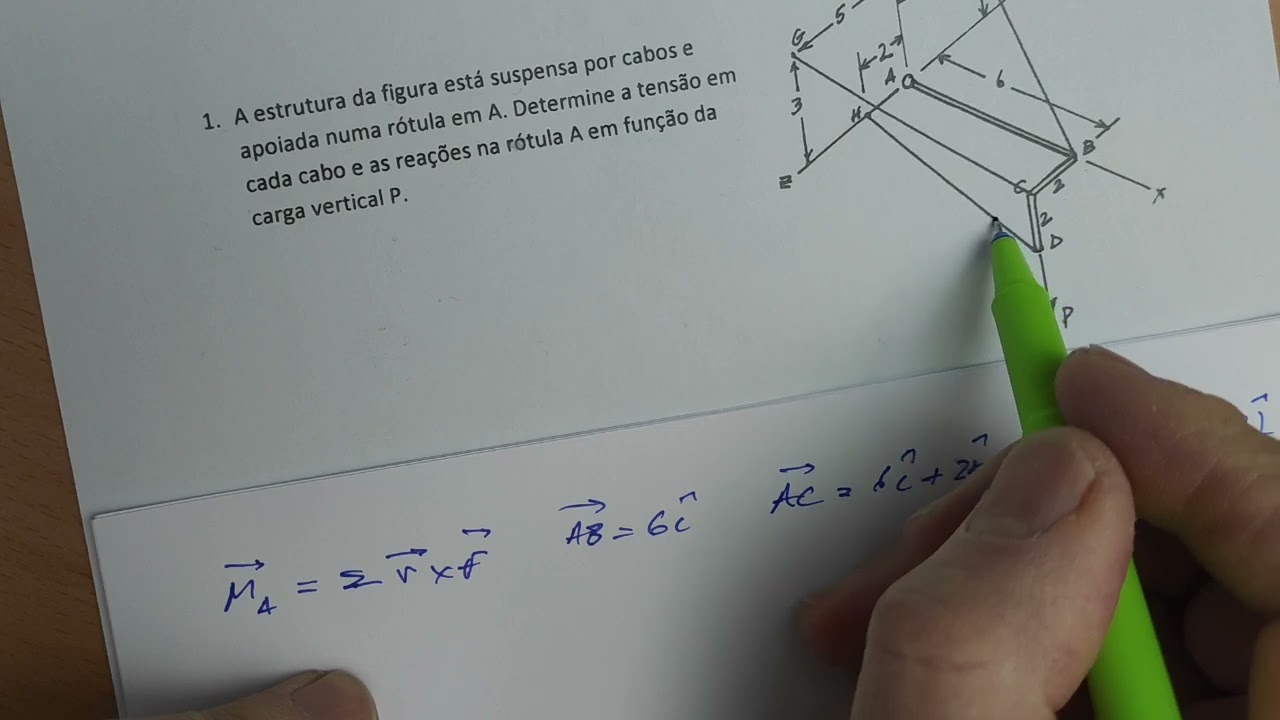 1. A estrutura da figura está suspensa por cabos e
apoiada numa rótula em A. Determine a tensão em
cada cabo e as reações na rótula A em função da
carga vertical P.
5
G
2
A
3
H
6
B
Z
C
2
X
2
D
P
M⃗_A = Σ r⃗ × F⃗
AB⃗ = 6î
AC⃗ = 6î + 2k̂